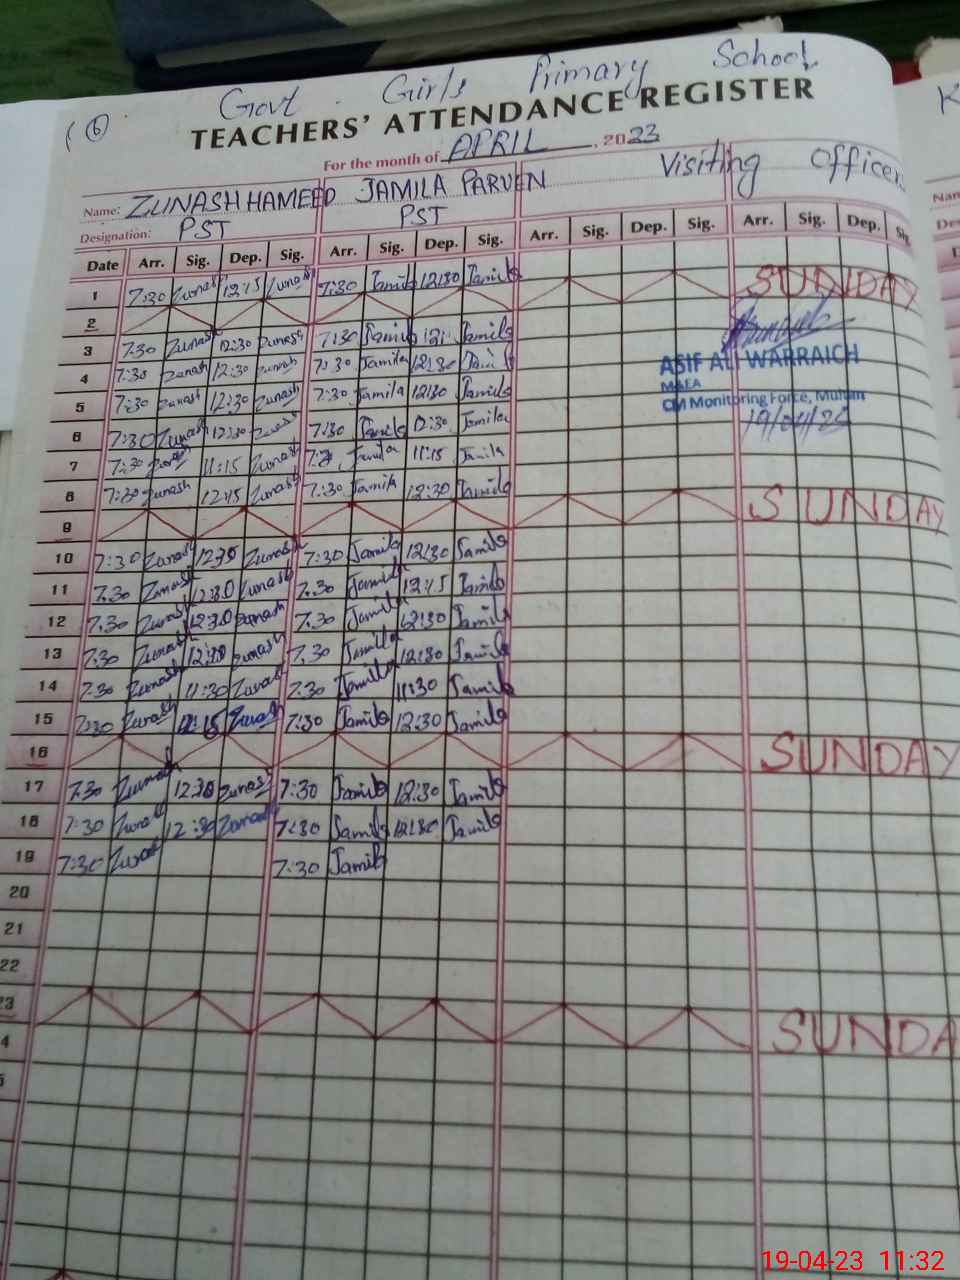 Govt. Girls Primary School
( 6
TEACHERS' ATTENDANCE REGISTER
For the month of APRIL, 2023
Visiting Officer
Name: ZUNASH HAMEED JAMILA PARVEN
Designation: PST PST
Date Arr. Sig. Dep. Sig. Arr. Sig. Dep. Sig. Arr. Sig. Dep. Sig. Arr. Sig. Dep. Sig.
1 7:30 Zunash 12:15 Zunash 7:30 Jamila 12:30 Jamila SUNDAY
2
3 7:30 Zunash 12:30 Zunash 7:30 Jamila Jamila
ASIF ALI WARRAICH
4 7:30 Zunash 12:30 Zunash 7:30 Jamila 12:30 Jamila
MAEA
5 7:30 Zunash 12:30 Zunash 7:30 Jamila 12:30 Jamila
CM Monitoring Force, Multan
6 7:30 Zunash 12:30 Zunash 7:30 Jamila 12:30 Jamila
19/04/23
7 7:30 Zunash 11:15 Zunash Jamila 11:15 Jamila
8 7:30 Zunash 12:15 Zunash 7:30 Jamila 12:30 Jamila
9 SUNDAY
10 7:30 Zunash 12:30 Zunash 7:30 Jamila 12:30 Jamila
11 7:30 Zunash 12:30 Zunash 7:30 Jamila 12:15 Jamila
12 7:30 Zunash 12:30 Zunash 7:30 Jamila 12:30 Jamila
13 7:30 Zunash Zunash 7:30 Jamila 12:30 Jamila
14 7:30 Zunash 11:30 Zunash 7:30 Jamila 11:30 Jamila
15 7:30 Zunash 12:15 Zunash 7:30 Jamila 12:30 Jamila
16 SUNDAY
17 7:30 Zunash 12:30 Zunash 7:30 Jamila 12:30 Jamila
18 7:30 Zunash 12:30 Zunash 7:30 Jamila 12:30 Jamila
19 7:30 Zunash 7:30 Jamila
20
21
22
3 SUNDA
4
5
19-04-23 11:32